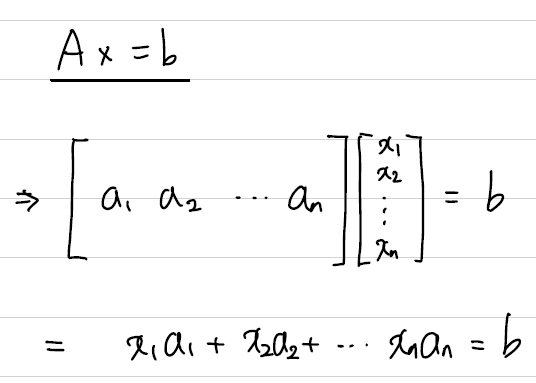 Ax = b
⇒ [ a₁ a₂ ⋯ aₙ ] [ x₁ x₂ ⋮ xₙ ] = b
= x₁a₁ + x₂a₂ + ⋯ xₙaₙ = b